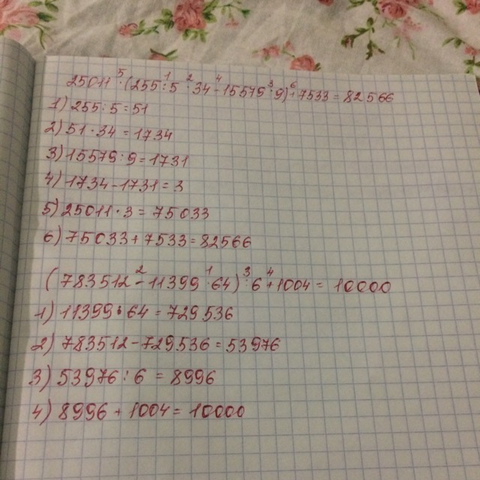 25011 ⁵· (255 ¹: 5 ²· 34 ⁴- 15579 ³: 9) ⁶+ 7533 = 82566
1) 255 : 5 = 51
2) 51 · 34 = 1734
3) 15579 : 9 = 1731
4) 1734 - 1731 = 3
5) 25011 · 3 = 75033
6) 75033 + 7533 = 82566
(783512 ²- 11399 ¹· 64) ³: 6 ⁴+ 1004 = 10000
1) 11399 · 64 = 729536
2) 783512 - 729536 = 53976
3) 53976 : 6 = 8996
4) 8996 + 1004 = 10000